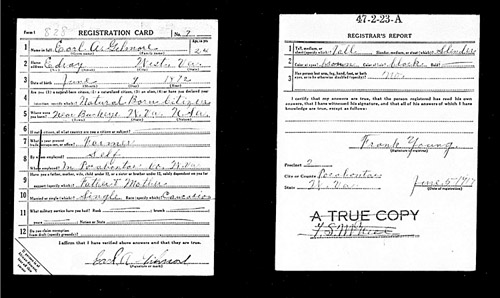 Form 1 828 REGISTRATION CARD No. 7
1 Name in full Earl A. Gilmore Age, in yrs. 24
2 Home address Edray West Va
3 Date of birth June 9 1892
4 Natural Born Citizen
5 Where were you born? Near Buckeye W. Va
6 If not a citizen, of what country are you a citizen or subject?
7 What is your present trade, occupation, or office? Farmer
8 By whom employed? Self
Where employed? In Pocahontas Co. W. Va
9 Father & Mother
10 Married or single (which)? Single Race (specify which)? Caucasian
11 What military service have you had? Rank branch
years Nation or State
12 Do you claim exemption from draft (specify grounds)?
I affirm that I have verified above answers and that they are true.
Earl A. Gilmore
(Signature or mark)
47-2-23-A
REGISTRAR'S REPORT
1 Tall, medium, or short (specify which)? Tall Slender, medium, or stout (which)? Slender
2 Color of eyes? brown Color of hair? black
3 Has person lost arm, leg, hand, foot, or both eyes, or is he otherwise disabled (specify)? No
I certify that my answers are true, that the person registered has read his own answers, that I have witnessed his signature, and that all of his answers of which I have knowledge are true, except as follows:
Frank Young
(Signature of registrar)
Precinct 2
City or County Pocahontas
State W. Va.
June 5 1917
(Date of registration)
A TRUE COPY